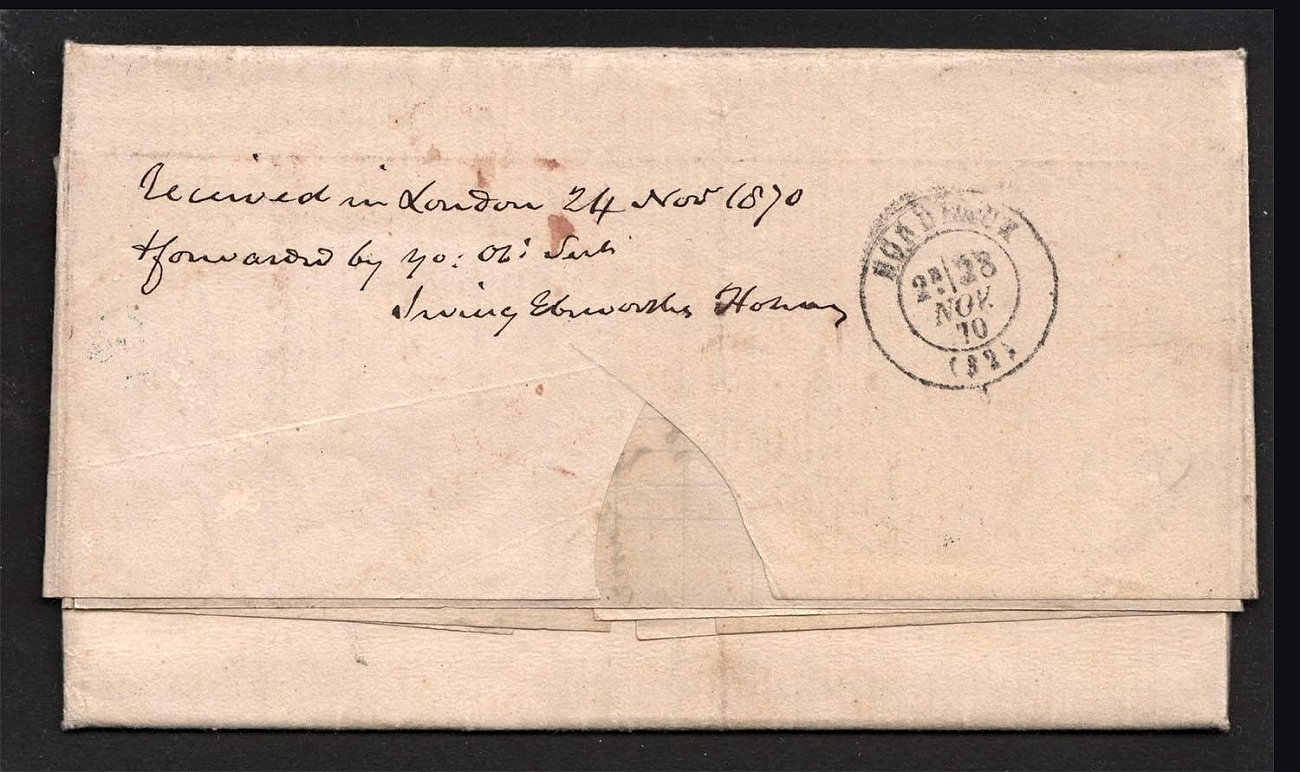 Received in London 24 Nov 1870
& forwarded by yo: Obt Servt
Irving Ebsworth & Holmes
BORDEAUX
2E 28
NOV.
70
(32)